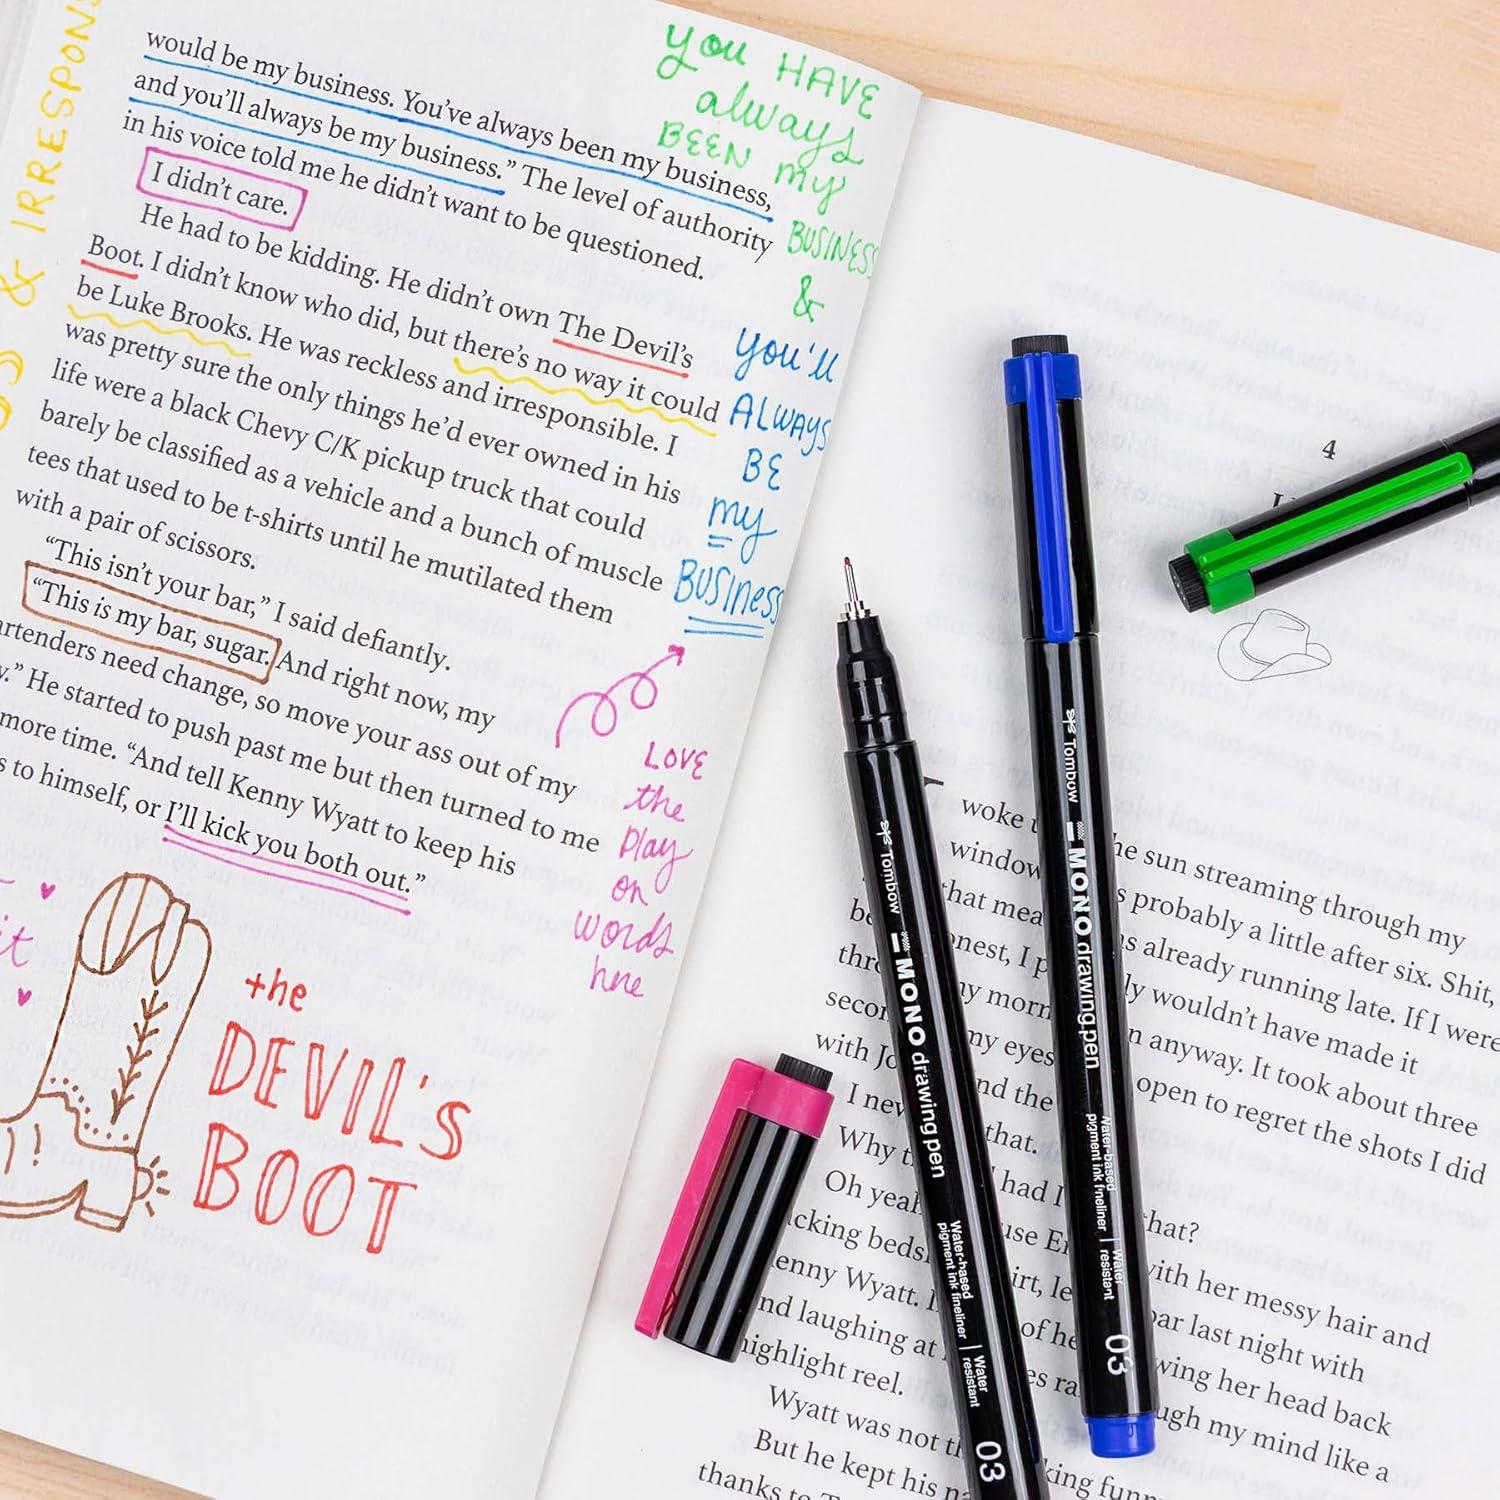 & IRRESPON
would be my business. You've always been my business,
and you'll always be my business." The level of authority
in his voice told me he didn't want to be questioned.
I didn't care.
He had to be kidding. He didn't own The Devil's
Boot. I didn't know who did, but there's no way it could
be Luke Brooks. He was reckless and irresponsible. I
was pretty sure the only things he'd ever owned in his
life were a black Chevy C/K pickup truck that could
barely be classified as a vehicle and a bunch of muscle
tees that used to be t-shirts until he mutilated them
with a pair of scissors.
"This isn't your bar," I said defiantly.
"This is my bar, sugar. And right now, my
artenders need change, so move your ass out of my
." He started to push past me but then turned to me
more time. "And tell Kenny Wyatt to keep his
s to himself, or I'll kick you both out."
you HAVE
always
BEEN my
BUSINESS
&
you'll
ALWAYS
BE
my
BUSINESS
LOVE
the
play
on
words
here
it
the
DEVIL'S
BOOT
!
4
woke the sun streaming through my
window s probably a little after six. Shit,
that mea as already running late. If I were
be onest, I p ly wouldn't have made it
thr my morn n anyway. It took about three
seco my eyes open to regret the shots I did
with Jo nd the
I nev that.
Why had I that?
Oh yea use E with her messy hair and
cking beds irt, le bar last night with
enny Wyatt. of he wing her head back
nd laughing at es ra ugh my mind like a
highlight reel.
Wyatt was not th king funn
But he kept his na
thanks to
Tombow
MONO drawing pen
Water-based
pigment ink fineliner
Water
resistant
03
Tombow
MONO drawing pen
Water-based
pigment ink fineliner
Water
resistant
03